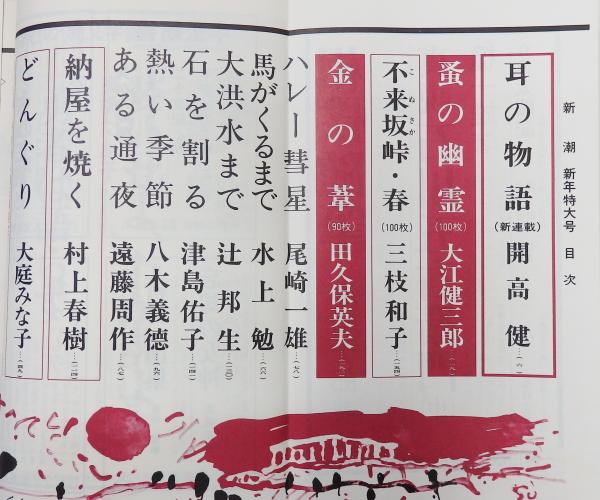 新潮 新年特大号 目次
耳の物語(新連載)開高健…(六)
蚤の幽霊(100枚)大江健三郎
不来坂峠・春(100枚)三枝和子…(一五四)
こねさか
金の葦(90枚)田久保英夫
ハレー彗星 尾崎一雄…(七八)
馬がくるまで 水上勉…(六六)
大洪水まで 辻邦生
石を割る 津島佑子
熱い季節 八木義徳…(九六)
ある通夜 遠藤周作…(八七)
納屋を焼く 村上春樹
どんぐり 大庭みな子